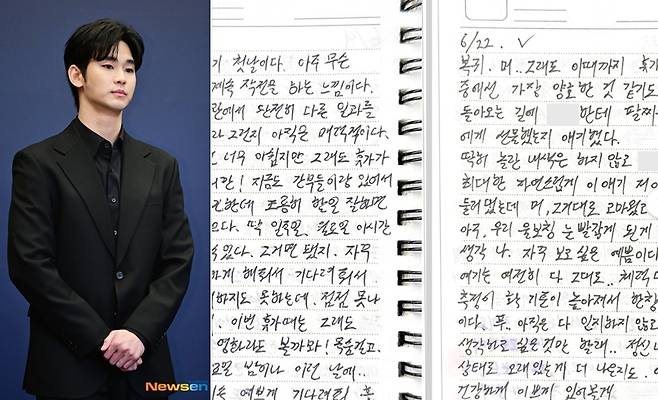 Newsen
기 첫날이다. 아주 무슨
계속 작전을 하는 느낌이다.
관에서 완전히 다른 일과를
라 그런지 아직은 매력적이다.
은 너무 아쉽지만 그래도 휴가가
지금도 간부들이랑 있어서
한데 조용히 할일 잘하면
딱 일주일. 필요한 아시간
있다. 그거면 됐지. 자꾸
하게 해줘서 기다려줘서
하지도 못하는데. 점점 못나
이번 휴가때는 그래도
영화라도 볼까봐!
밤이나 이런 날에..
예쁘게 기다려줘
6/22. ✓
복귀. 머.. 그래도 이때까지 휴가
중에선 가장 양호한 것 같기도
돌아오는 길에 한테 팔찌
에게 선물했는지 얘기했다.
딱히 놀란 내색은 하지 않고
최대한 자연스럽게 이 얘기 저
둘러댔는데 머, 그거대로 고마웠고
아주, 우리 울보찡 눈 발갛게 된게
생각 나. 자꾸 보고 싶은 예쁨이다
여기는 여전히 다 그대로.. 체력
측정이 한 기준이 높아져서 한참
이다. 푸.. 아직은 다 인지하지 않고
생각하고 싶은 것만 할래..
상태로 오래있는게 더 나은지도.
건강하게 이쁘게 있어볼게